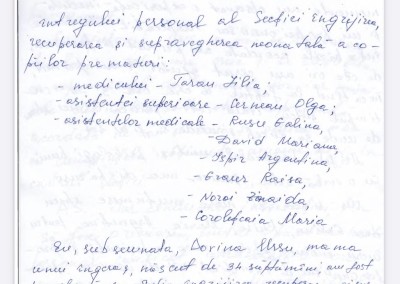 întregului personal al Secției îngrijirea,
recuperarea și supravegherea neonatală a co-
piilor prematuri:
- medicului - Taran Lilia;
- asistentei superioare - Cerneau Olga;
- asistentelor medicale - Rusu Galina,
- David Mariana,
- Ispir Argentina,
- Graur Raisa,
- Noroi Zinaida,
- Corolefcaia Maria
Eu, subsemnata, Dorina Ursu, mama
unui îngeraș, născut de 34 săptămâni, am fost
îngrijirea recuperarea